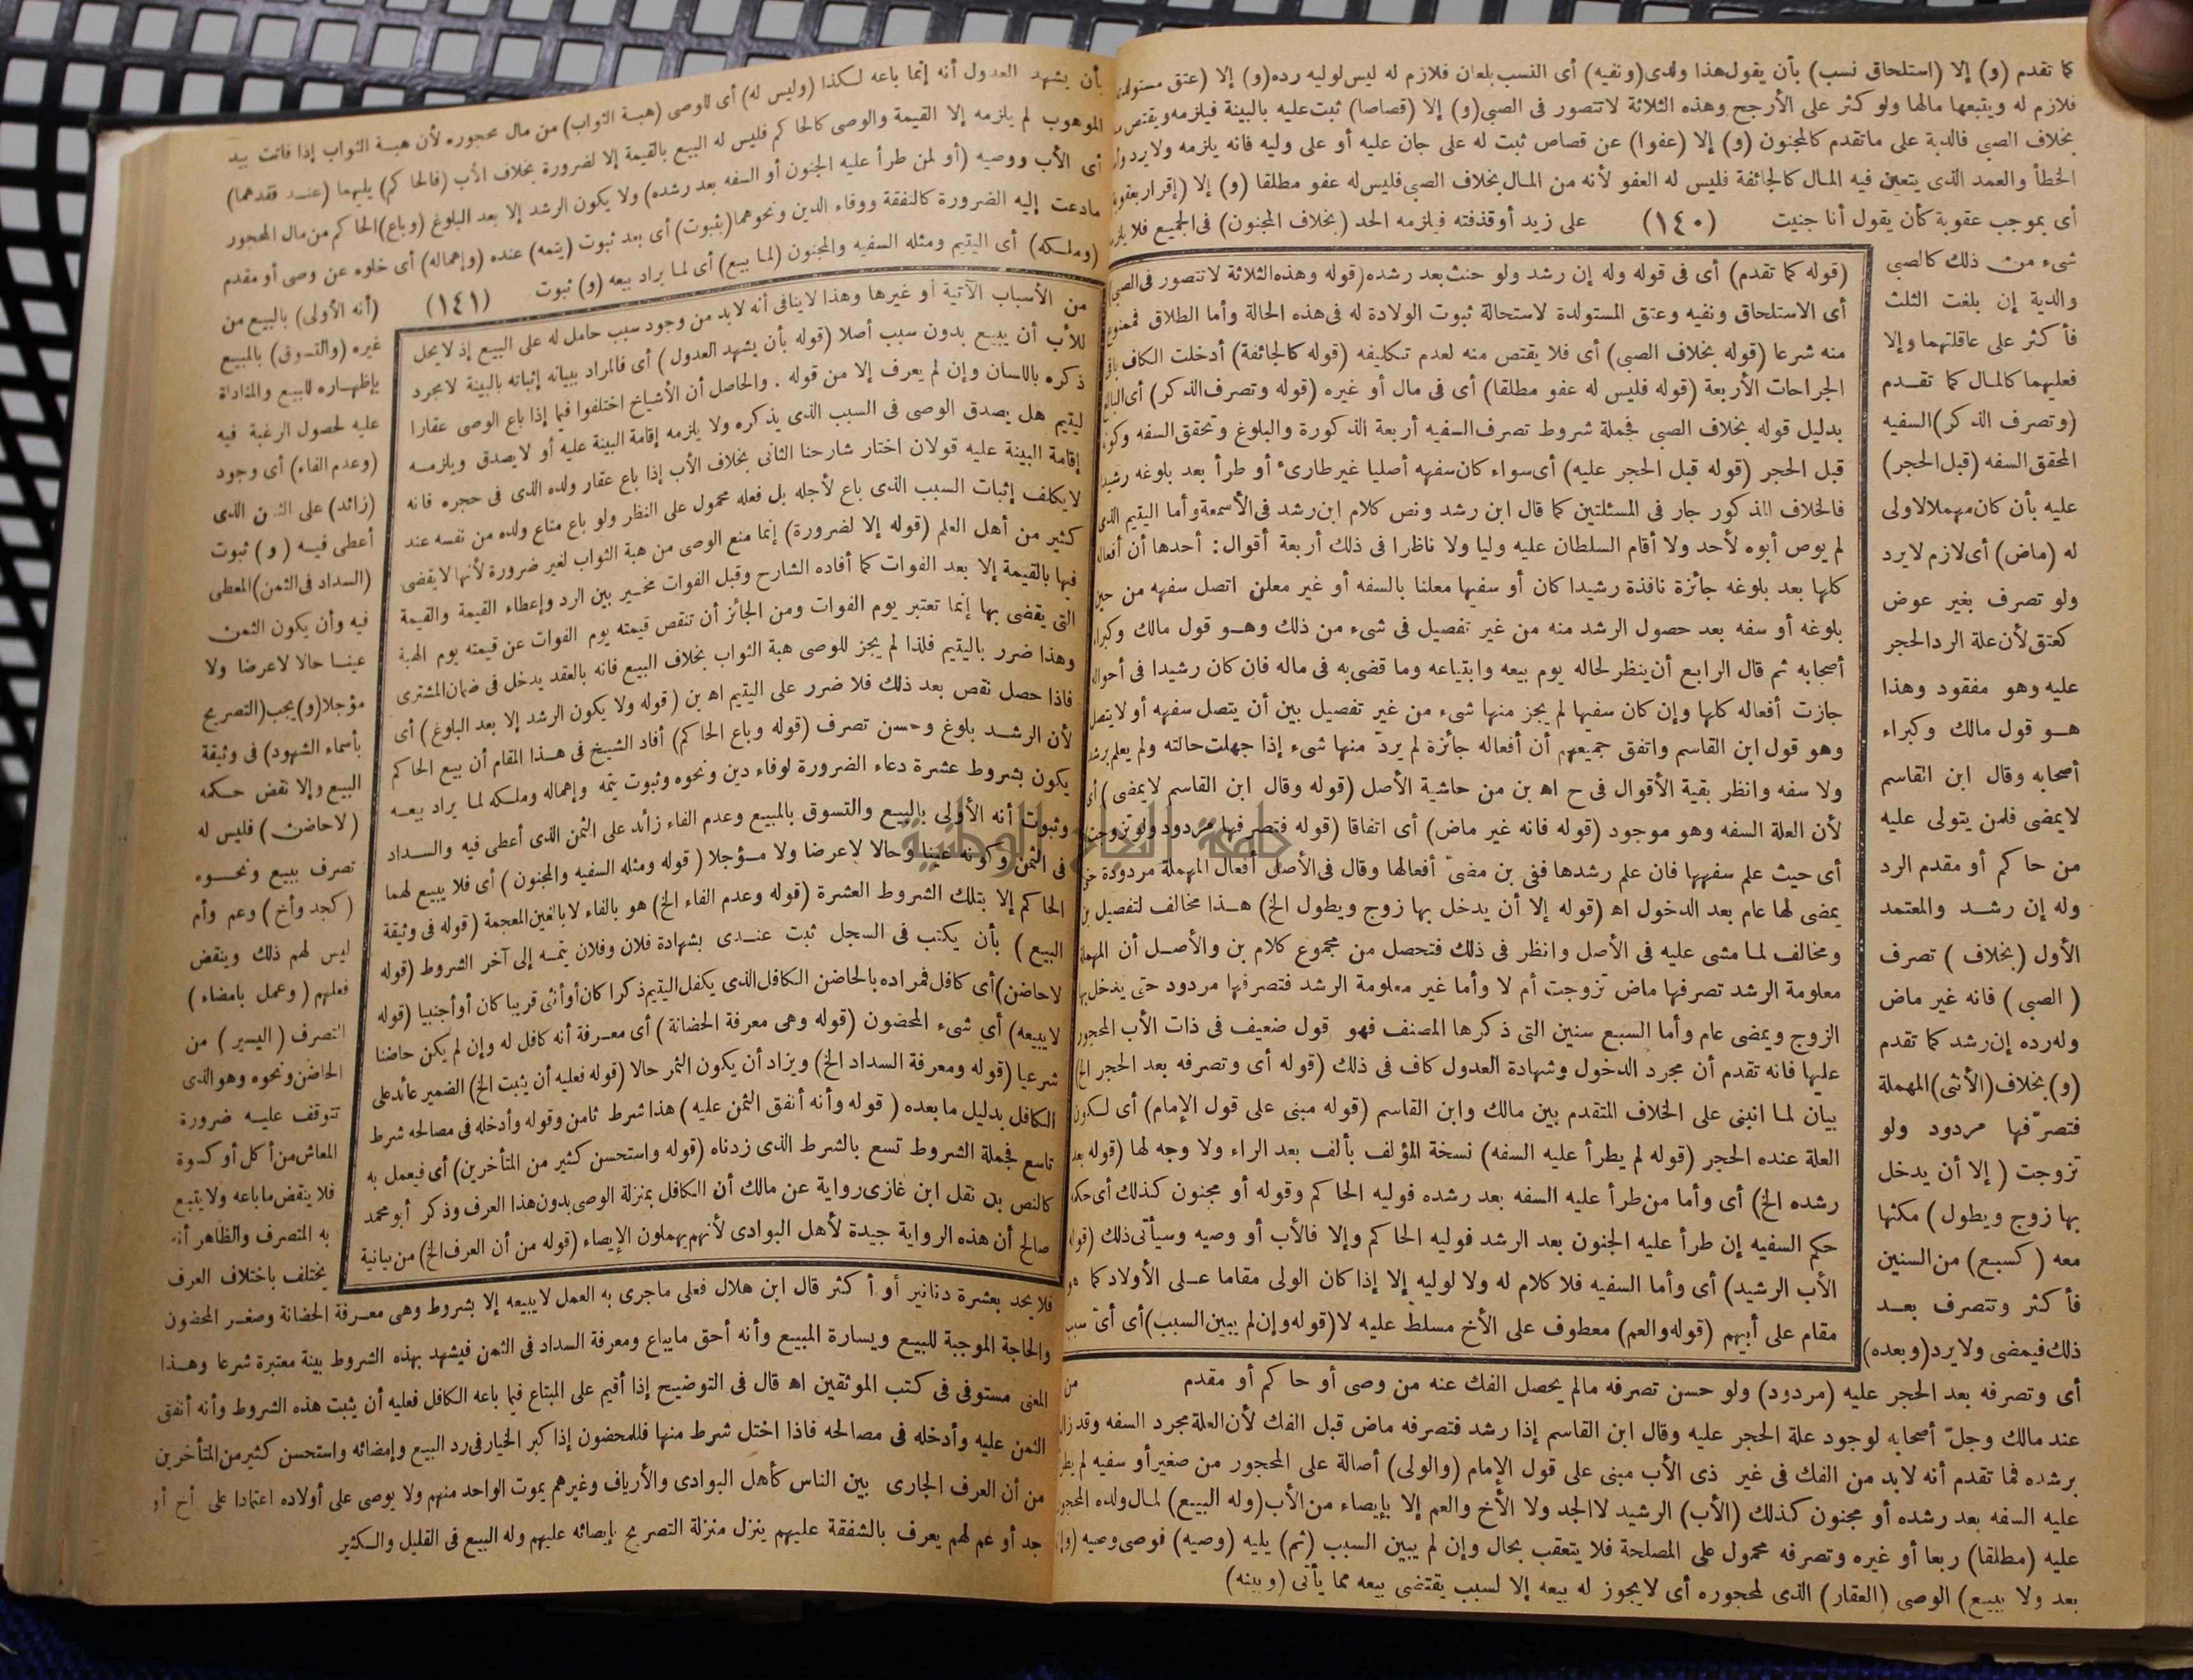 كما تقدم (و) إلا (استلحاق نسب) بأن يقول هذا ولدى (ونفيه) أى النسب بلعان فلازم له ليس لوليه رده (و) إلا (عتق مستولدته)
فلازم له ويتبعها مالها ولو كثر على الأرجح وهذه الثلاثة لا تتصور فى الصبى (و) إلا (قصاصا) ثبت عليه بالبينة فيلزمه ويقتص
بخلاف الصبى فالدية على ما تقدم كالمجنون (و) إلا (عفوا) عن قصاص ثبت له على جان عليه أو على وليه فانه يلزمه ولا يرد
الخطأ والعمد الذى يتعين فيه المال كالجائفة فليس له العفو لأنه من المال بخلاف الصبى فليس له عفو مطلقا (و) إلا (إقرار بعقوبة
أى بموجب عقوبة كأن يقول أنا جنيت (١٤٠) على زيد أو قذفته فيلزمه الحد (بخلاف المجنون) فى الجميع فلا يلزمه
شىء من ذلك كالصبى
والدية إن بلغت الثلث
فأكثر على عاقلتهما وإلا
فعليهما كالمال كما تقدم
(وتصرف الذكر) السفيه
المحقق السفه (قبل الحجر)
عليه بأن كان مهملا لا ولى
له (ماض) أى لازم لا يرد
ولو تصرف بغير عوض
كعتق لأن علة الرد الحجر
عليه وهو مفقود وهذا
هو قول مالك وكبراء
أصحابه وقال ابن القاسم
لا يمضى فلمن يتولى عليه
من حاكم أو مقدم الرد
وله إن رشد والمعتمد
الأول (بخلاف) تصرف
(الصبى) فانه غير ماض
وله رده إن رشد كما تقدم
(و) بخلاف (الأنثى) المهملة
فتصرّفها مردود ولو
تزوجت (إلا أن يدخل
بها زوج ويطول) مكثها
معه (كسبع) من السنين
فأكثر وتتصرف بعد
ذلك فيمضى ولا يرد (وبعده)
(قوله كما تقدم) أى فى قوله وله إن رشد ولو حنث بعد رشده (قوله وهذه الثلاثة لا تتصور فى الصبى)
أى الاستلحاق ونفيه وعتق المستولدة لاستحالة ثبوت الولادة له فى هذه الحالة وأما الطلاق فممنوع
منه شرعا (قوله بخلاف الصبى) أى فلا يقتص منه لعدم تكليفه (قوله كالجائفة) أدخلت الكاف باقى
الجراحات الأربعة (قوله فليس له عفو مطلقا) أى فى مال أو غيره (قوله وتصرف الذكر) أى البالغ
بدليل قوله بخلاف الصبى فجملة شروط تصرف السفيه أربعة الذكورة والبلوغ وتحقق السفه وكونه
قبل الحجر (قوله قبل الحجر عليه) أى سواء كان سفهه أصليا غير طارئ أو طرأ بعد بلوغه رشيدا
فالخلاف المذكور جار فى المسئلتين كما قال ابن رشد ونص كلام ابن رشد فى الأسمعة وأما اليتيم الذى
لم يوص أبوه لأحد ولا أقام السلطان عليه وليا ولا ناظرا فى ذلك أربعة أقوال: أحدها أن أفعاله
كلها بعد بلوغه جائزة نافذة رشيدا كان أو سفيها معلنا بالسفه أو غير معلن اتصل سفهه من حين
بلوغه أو سفه بعد حصول الرشد منه من غير تفصيل فى شىء من ذلك وهو قول مالك وكبراء
أصحابه ثم قال الرابع أن ينظر لحاله يوم بيعه وابتياعه وما قضى به فى ماله فان كان رشيدا فى أحواله
جازت أفعاله كلها وإن كان سفيها لم يجز منها شىء من غير تفصيل بين أن يتصل سفهه أو لا يتصل
وهو قول ابن القاسم واتفق جميعهم أن أفعاله جائزة لم يردّ منها شىء إذا جهلت حالته ولم يعلم برشد
ولا سفه وانظر بقية الأقوال فى ح اهـ بن من حاشية الأصل (قوله وقال ابن القاسم لا يمضى) أى
لأن العلة السفه وهو موجود (قوله فانه غير ماض) أى اتفاقا (قوله فتصرفها مردود ولو تزوجت)
أى حيث علم سفهها فان علم رشدها ففى بن مضىّ أفعالها وقال فى الأصل أفعال المهملة مردودة حتى
يمضى لها عام بعد الدخول اهـ (قوله إلا أن يدخل بها زوج ويطول الخ) هذا مخالف لتفصيل بن
ومخالف لما مشى عليه فى الأصل وانظر فى ذلك فتحصل من مجموع كلام بن والأصل أن المهملة
معلومة الرشد تصرفها ماض تزوجت أم لا وأما غير معلومة الرشد فتصرفها مردود حتى يدخل بها
الزوج ويمضى عام وأما السبع سنين التى ذكرها المصنف فهو قول ضعيف فى ذات الأب المحجور
عليها فانه تقدم أن مجرد الدخول وشهادة العدول كاف فى ذلك (قوله أى وتصرفه بعد الحجر الخ)
بيان لما انبنى على الخلاف المتقدم بين مالك وابن القاسم (قوله مبنى على قول الإمام) أى لكون
العلة عنده الحجر (قوله لم يطرأ عليه السفه) نسخة المؤلف بألف بعد الراء ولا وجه لها (قوله بعد
رشده الخ) أى وأما من طرأ عليه السفه بعد رشده فوليه الحاكم وقوله أو مجنون كذلك أى حكمه
حكم السفيه إن طرأ عليه الجنون بعد الرشد فوليه الحاكم وإلا فالأب أو وصيه وسيأتى ذلك (قوله
الأب الرشيد) أى وأما السفيه فلا كلام له ولا لوليه إلا إذا كان الولى مقاما على الأولاد كما هو
مقام على أبيهم (قوله والعم) معطوف على الأخ مسلط عليه لا (قوله وإن لم يبين السبب) أى أىّ سبب
أى وتصرفه بعد الحجر عليه (مردود) ولو حسن تصرفه مالم يحصل الفك عنه من وصى أو حاكم أو مقدم من
عند مالك وجلّ أصحابه لوجود علة الحجر عليه وقال ابن القاسم إذا رشد فتصرفه ماض قبل الفك لأن العلة مجرد السفه وقد زال
برشده فما تقدم أنه لابد من الفك فى غير ذى الأب مبنى على قول الإمام (والولى) أصالة على المحجور من صغير أو سفيه لم يطرأ
عليه السفه بعد رشده أو مجنون كذلك (الأب) الرشيد لا الجد ولا الأخ والعم إلا بإيصاء من الأب (وله البيع) لمال ولده المحجور
عليه (مطلقا) ربعا أو غيره وتصرفه محمول على المصلحة فلا يتعقب بحال وإن لم يبين السبب (ثم) يليه (وصيه) فوصى وصيه
بعد ولا يبيع) الوصى (العقار) الذى لمحجوره أى لا يجوز له بيعه إلا لسبب يقتضى بيعه مما يأتى (وبينه)
بأن يشهد العدول أنه إنما باعه لكذا (وليس له) أى للوصى (هبة الثواب) من مال محجوره لأن هبة الثواب إذا فاتت بيد
الموهوب لم يلزمه إلا القيمة والوصى كالحاكم فليس له البيع بالقيمة إلا لضرورة بخلاف الأب (فالحاكم) يليهما (عند فقدهما)
أى الأب ووصيه (أو لمن طرأ عليه الجنون أو السفه بعد رشده) ولا يكون الرشد إلا بعد البلوغ (وباع) الحاكم من مال المحجور
مادعت إليه الضرورة كالنفقة ووفاء الدين ونحوهما (بثبوت) أى بعد ثبوت (يتمه) عنده (وإهماله) أى خلوه عن وصى أو مقدم
(وملكه) أى اليتيم ومثله السفيه والمجنون (لما بيع) أى لما يراد بيعه (و) ثبوت (١٤١)
(أنه الأولى) بالبيع من
غيره (والتسوق) بالمبيع
بإظهاره للبيع والمناداة
عليه لحصول الرغبة فيه
(وعدم الغاء) أى وجود
(زائد) على الثمن الذى
أعطى فيه (و) ثبوت
(السداد فى الثمن) المعطى
فيه وأن يكون الثمن
عينا حالا لا عرضا ولا
مؤجلا (و) يجب (التصريح
بأسماء الشهود) فى وثيقة
البيع وإلا نقض حكمه
(لا حاضن) فليس له
تصرف ببيع ونحوه
(كجد وأخ) وعم وأم
ليس لهم ذلك وينقض
فعلهم (وعمل بامضاء)
التصرف (اليسير) من
الحاضن ونحوه وهو الذى
تتوقف عليه ضرورة
المعاش من أكل أو كسوة
فلا ينقض ما باعه ولا يتبع
به المتصرف والظاهر أنه
يختلف باختلاف العرف
من الأسباب الآتية أو غيرها وهذا لا ينافى أنه لابد من وجود سبب حامل له على البيع إذ لا يحل
للأب أن يبيع بدون سبب أصلا (قوله بأن يشهد العدول) أى فالمراد ببيانه إثباته بالبينة لا مجرد
ذكره باللسان وإن لم يعرف إلا من قوله. والحاصل أن الأشياخ اختلفوا فيما إذا باع الوصى عقارا
ليتيم هل يصدق الوصى فى السبب الذى يذكره ولا يلزمه إقامة البينة عليه أو لا يصدق ويلزمه
إقامة البينة عليه قولان اختار شارحنا الثانى بخلاف الأب إذا باع عقار ولده الذى فى حجره فانه
لا يكلف إثبات السبب الذى باع لأجله بل فعله محمول على النظر ولو باع متاع ولده من نفسه عند
كثير من أهل العلم (قوله إلا لضرورة) إنما منع الوصى من هبة الثواب لغير ضرورة لأنها لا يقضى
فيها بالقيمة إلا بعد الفوات كما أفاده الشارح وقبل الفوات مخير بين الرد وإعطاء القيمة والقيمة
التى يقضى بها إنما تعتبر يوم الفوات ومن الجائز أن تنقص قيمته يوم الفوات عن قيمته يوم الهبة
وهذا ضرر باليتيم فلذا لم يجز للوصى هبة الثواب بخلاف البيع فانه بالعقد يدخل فى ضمان المشترى
فاذا حصل نقص بعد ذلك فلا ضرر على اليتيم اهـ بن (قوله ولا يكون الرشد إلا بعد البلوغ) أى
لأن الرشد بلوغ وحسن تصرف (قوله وباع الحاكم) أفاد الشيخ فى هذا المقام أن بيع الحاكم
يكون بشروط عشرة دعاء الضرورة لوفاء دين ونحوه وثبوت يتمه وإهماله وملكه لما يراد بيعه
وثبوت أنه الأولى بالبيع والتسوق بالمبيع وعدم الفاء زائد على الثمن الذى أعطى فيه والسداد
فى الثمن وكونه عينا وحالا لا عرضا ولا مؤجلا (قوله ومثله السفيه والمجنون) أى فلا يبيع لهما
الحاكم إلا بتلك الشروط العشرة (قوله وعدم الفاء الخ) هو بالفاء لا بالغين المعجمة (قوله فى وثيقة
البيع) بأن يكتب فى السجل ثبت عندى بشهادة فلان وفلان يتمه إلى آخر الشروط (قوله
لا حاضن) أى كافل فمراده بالحاضن الكافل الذى يكفل اليتيم ذكرا كان أو أنثى قريبا كان أو أجنبيا (قوله
لا يبيعه) أى شىء المحضون (قوله وهى معرفة الحضانة) أى معرفة أنه كافل له وإن لم يكن حاضنا
شرعيا (قوله ومعرفة السداد الخ) ويزاد أن يكون الثمر حالا (قوله فعليه أن يثبت الخ) الضمير عائد على
الكافل بدليل ما بعده (قوله وأنه أنفق الثمن عليه) هذا شرط ثامن وقوله وأدخله فى مصالحه شرط
تاسع فجملة الشروط تسع بالشرط الذى زدناه (قوله واستحسن كثير من المتأخرين) أى فيعمل به
كالنص بل نقل ابن غازى رواية عن مالك أن الكافل بمنزلة الوصى بدون هذا العرف وذكر أبو محمد
صالح أن هذه الرواية جيدة لأهل البوادى لأنهم يهملون الإيصاء (قوله من أن العرف الخ) من بيانية
فلا يحد بعشرة دنانير أو أكثر قال ابن هلال فعلى ماجرى به العمل لا يبيعه إلا بشروط وهى معرفة الحضانة وصغر المحضون
والحاجة الموجبة للبيع ويسارة المبيع وأنه أحق مايباع ومعرفة السداد فى الثمن فيشهد بهذه الشروط بينة معتبرة شرعا وهذا
المعنى مستوفى فى كتب الموثقين اهـ قال فى التوضيح إذا أقيم على المبتاع فيما باعه الكافل فعليه أن يثبت هذه الشروط وأنه أنفق
الثمن عليه وأدخله فى مصالحه فاذا اختل شرط منها فللمحضون إذا كبر الخيار فى رد البيع وإمضائه واستحسن كثير من المتأخرين
من أن العرف الجارى بين الناس كأهل البوادى والأرياف وغيرهم يموت الواحد منهم ولا يوصى على أولاده اعتمادا على أخ أو
جد أو عم لهم يعرف بالشفقة عليهم ينزل منزلة التصريح بإيصائه عليهم وله البيع فى القليل والكثير
جامعة النجاح الوطنية